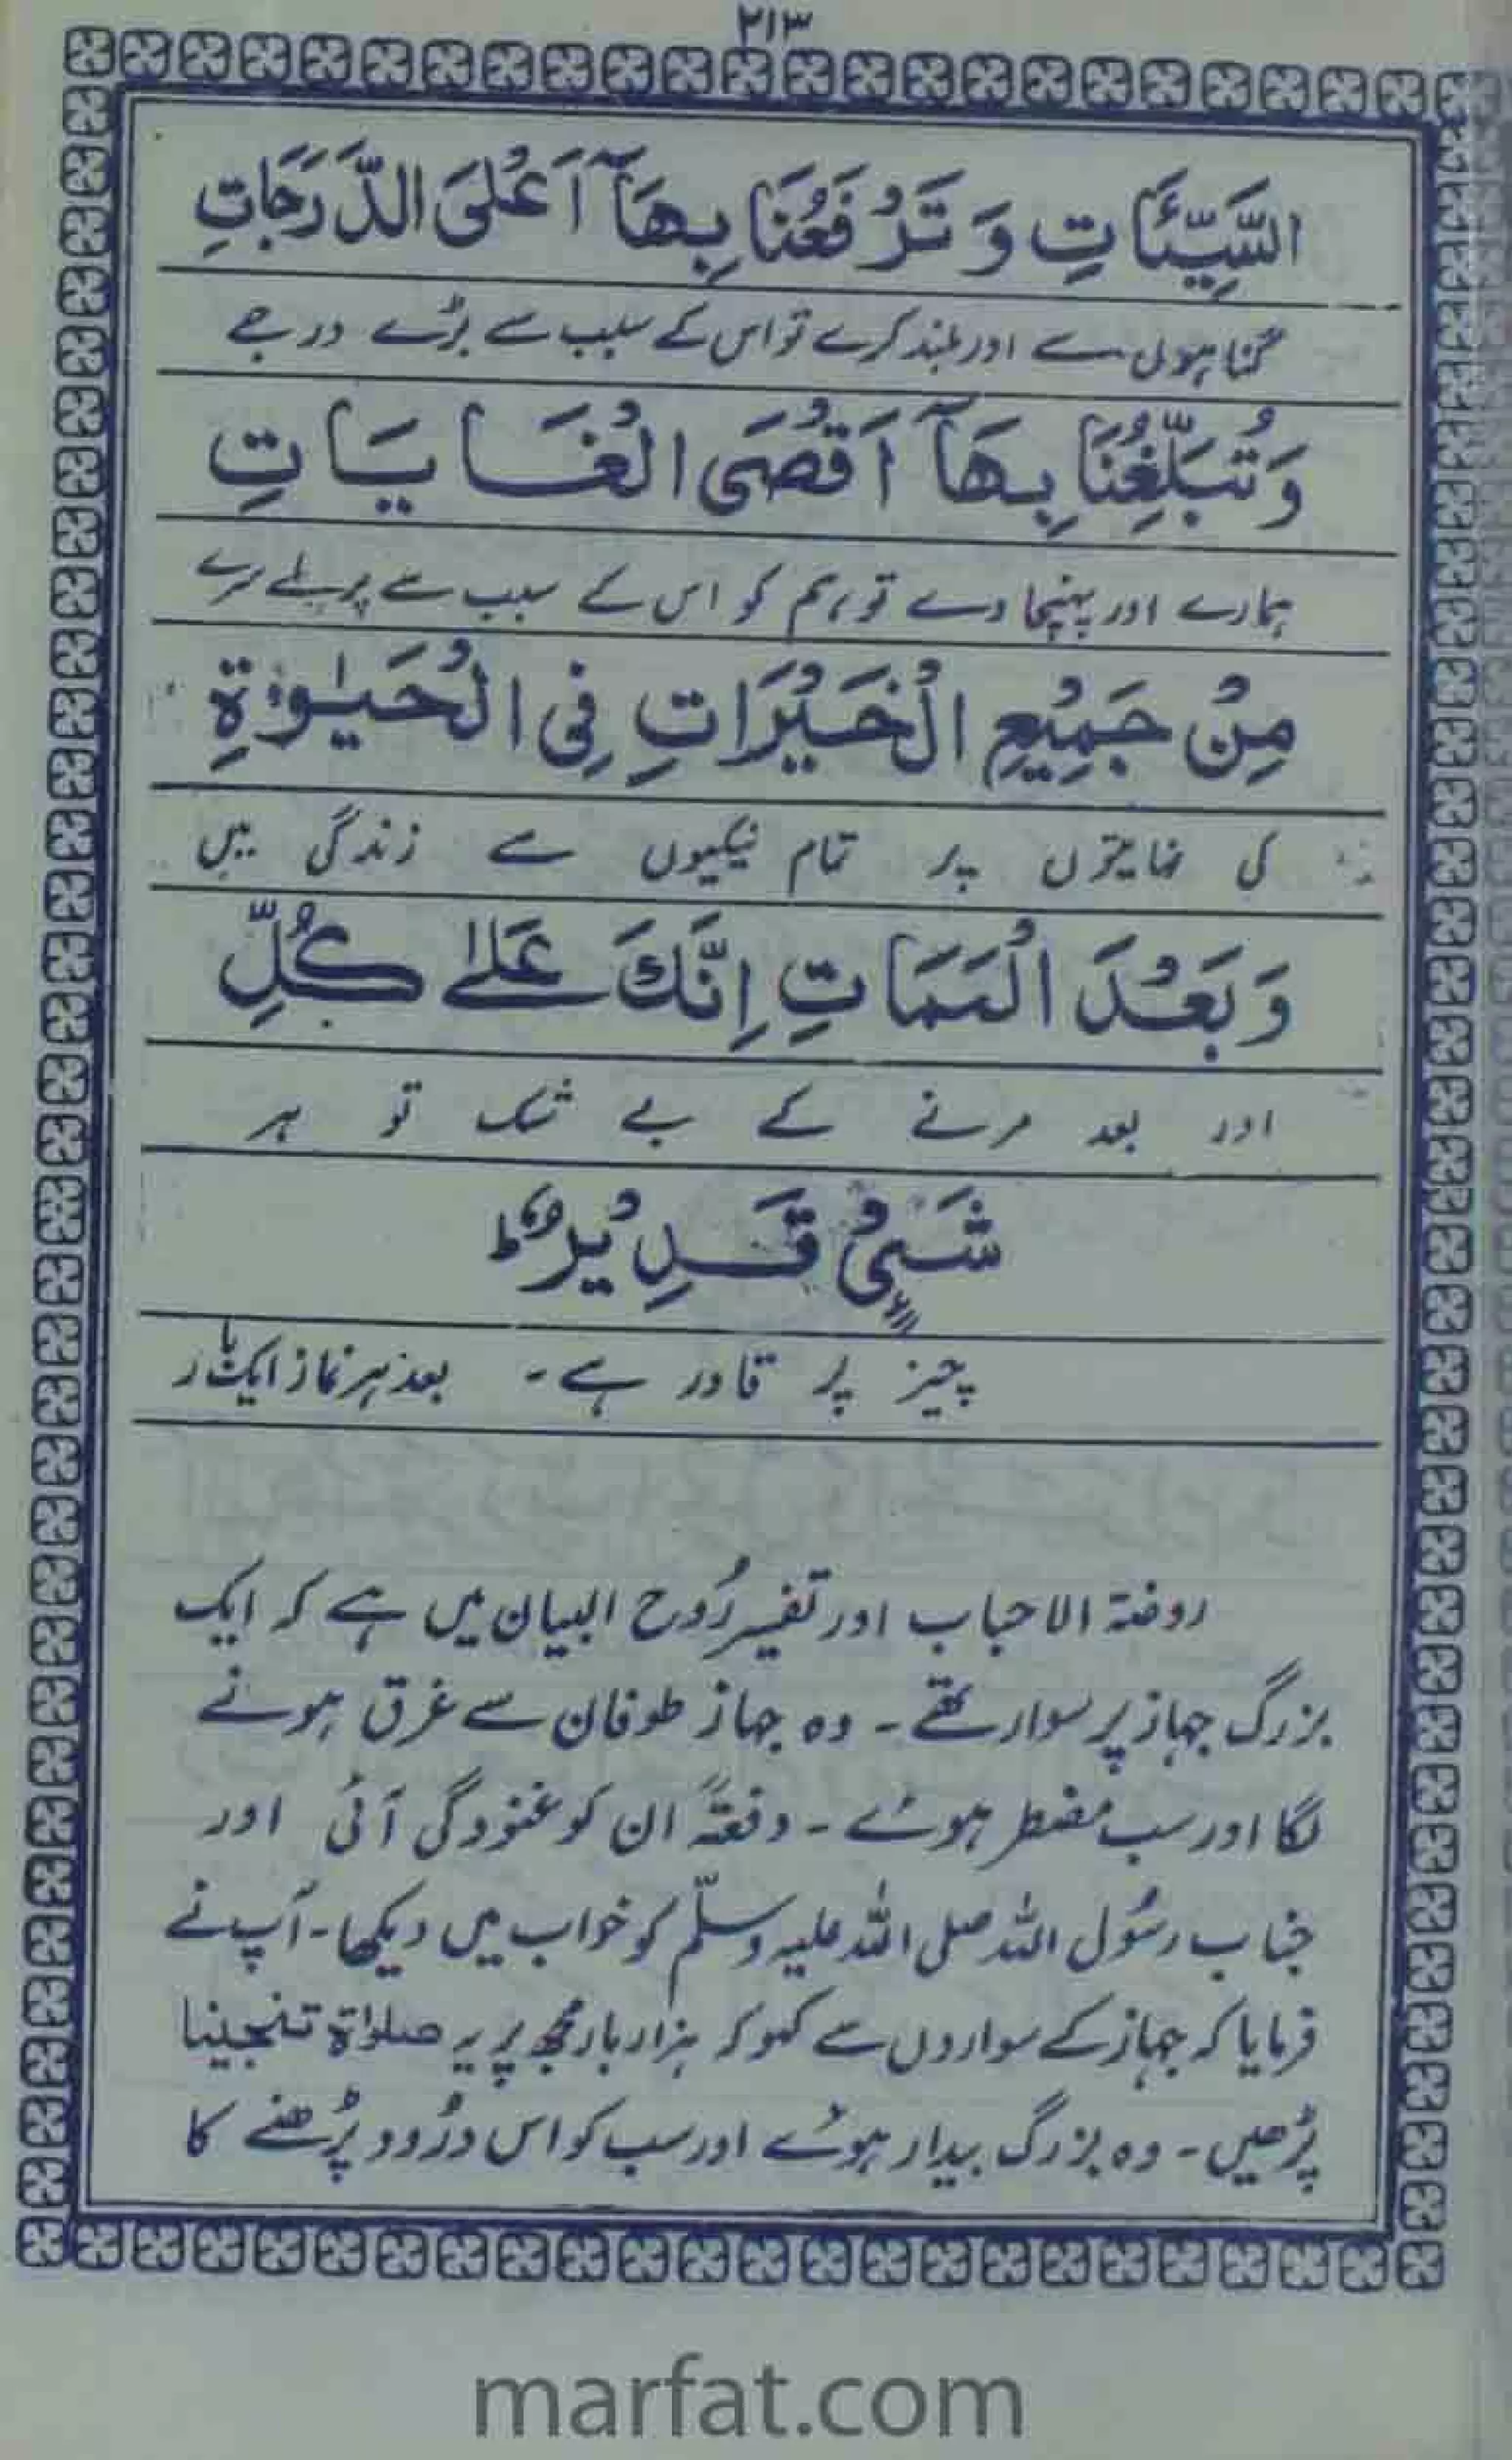 ۲۱۳
السَّيِّئَاتِ وَ تَرْفَعُنَا بِهَآ اَعْلَى الدَّرَجَاتِ
گناہوں سے اور بلند کرے تو اس کے سبب سے بڑے درجے
وَتُبَلِّغُنَا بِهَآ اَقْصَى الْغَايَاتِ
ہمارے اور پہنچا دے تو ہم کو اس کے سبب سے پرلے سرے
مِنْ جَمِيْعِ الْخَيْرَاتِ فِى الْحَيٰوةِ
کی نہایتوں پر تمام نیکیوں سے زندگی میں
وَبَعْدَ الْمَمَاتِ اِنَّكَ عَلٰے كُلِّ
اور بعد مرنے کے بے شک تو ہر
شَىْءٍ قَدِيْرٌ ط
چیز پر قادر ہے ۔ بعد ہر نماز ایک بار
روضۃ الاحباب اور تفسیر رُوح البیان میں ہے کہ ایک
بزرگ جہاز پر سوار تھے ۔ وہ جہاز طوفان سے غرق ہونے
لگا اور سب مضطر ہوئے ۔ دفعتہً ان کو غنودگی آئی اور
جناب رسُول اللہ صلی اللہ علیہ وسلّم کو خواب میں دیکھا ۔ آپ نے
فرمایا کہ جہاز کے سواروں سے کہو کہ ہزار بار مجھ پر یہ صلوٰۃ تنجینا
پڑھیں ۔ وہ بزرگ بیدار ہوئے اور سب کو اس درُود پڑھنے کا
marfat.com